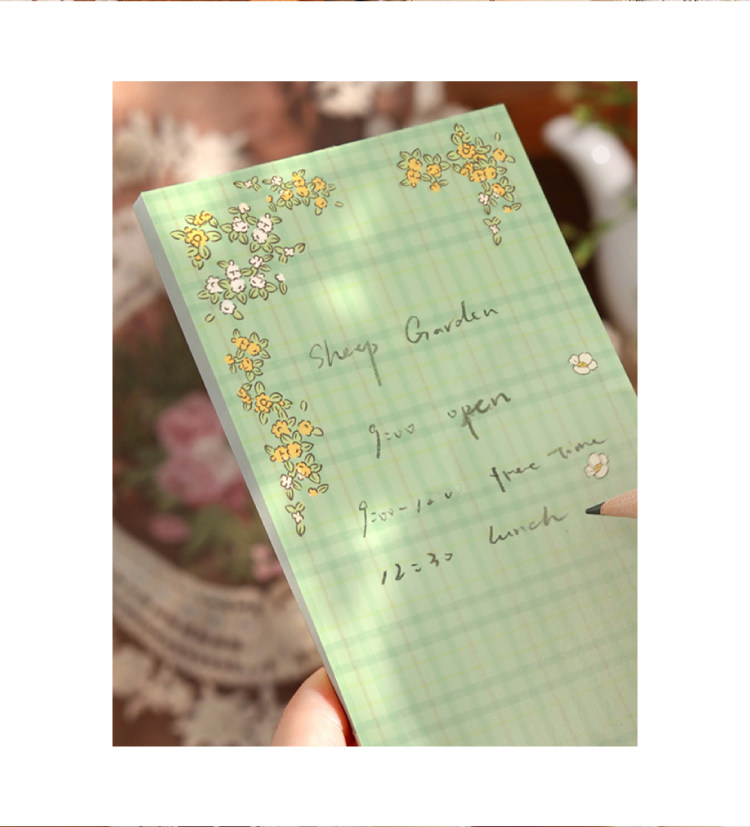 Sheep Garden
9:00 open
9:00-1:00 free time
12:30 lunch